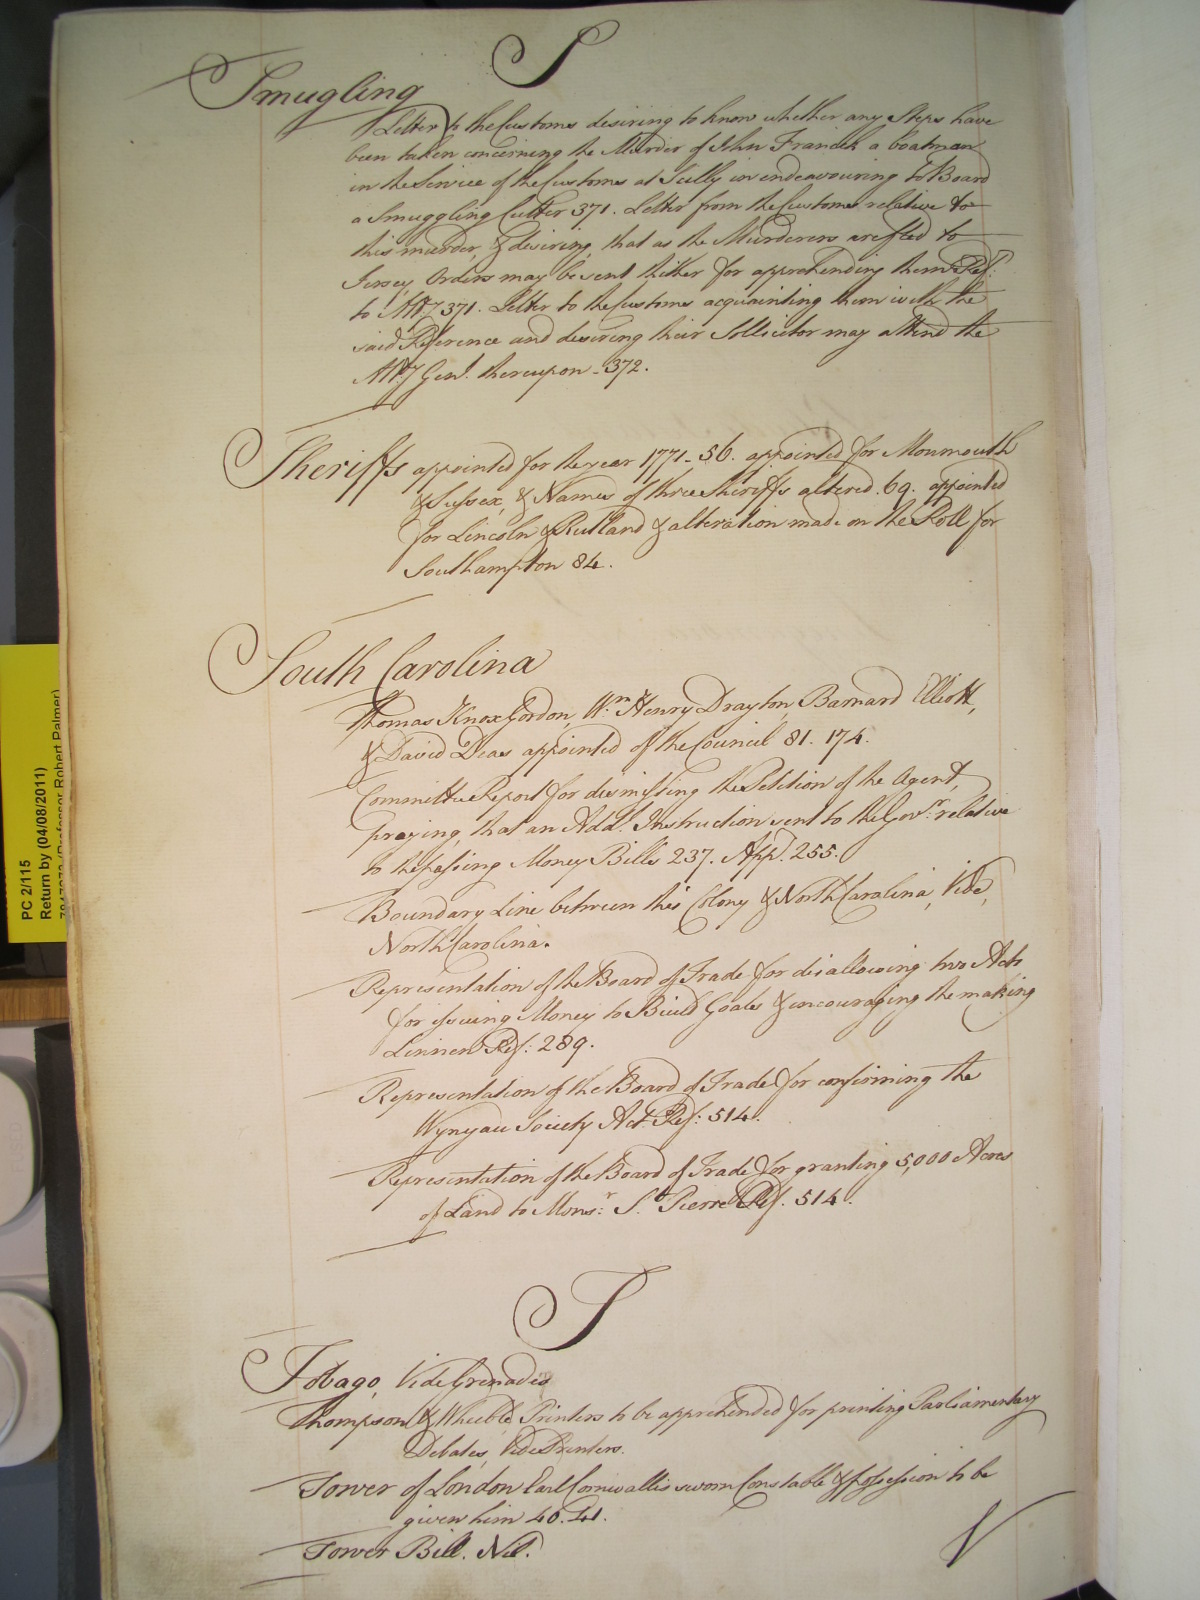 S
Smugling
Letter to the Customs desiring to know whether any Steps have
been taken concerning the Murder of John Francis a boatman
in the Service of the Customs at Scilly in endeavouring to Board
a Smuggling Cutter 371. Letter from the Customs relative to
this murder, & desiring, that as the Murderers are fled to
Jersey, Orders may be sent thither for apprehending them Ref:
to Att:y 371. Letter to the Customs acquainting them with the
said Reference and desiring their Sollicitor may attend the
Att:y Gen:l thereupon - 372.
Sheriffs appointed for the year 1771 - 56. appointed for Monmouth
& Sussex, & Names of three Sheriffs altered. 69. appointed
for Lincoln & Rutland & alteration made on the Roll for
Southampton 84.
South Carolina
Thomas Knox Gordon, W:m Henry Drayton, Barnard Elliott,
& David Deas appointed of the Council 81. 174.
Committee Report for dismissing the Petition of the Agent,
praying, that an Add:l Instruction sent to the Gov:r relative
to the passing Money Bills 237. App:d 255.
Boundary Line between this Colony & North Carolina, Vide,
North Carolina.
Representation of the Board of Trade for disallowing two Acts
for issuing Money to Build Goals & encouraging the making
Linnen Ref: 289.
Representation of the Board of Trade for confirming the
Wynyau Society Act Ref: 514.
Representation of the Board of Trade for granting 5,000 Acres
of Land to Mons:r S:t Pierre Ref. 514.
T
Tobago, Vide Grenades
Thompson & Wheble, Printers to be apprehended for printing Parliamentary
Debates, Vide Printers.
Tower of London Earl Cornwallis sworn Constable & possession to be
given him 40. 41.
Tower Bill. Nil.
V
PC 2/115
Return by (04/08/2011)
(Professor Robert Palmer)